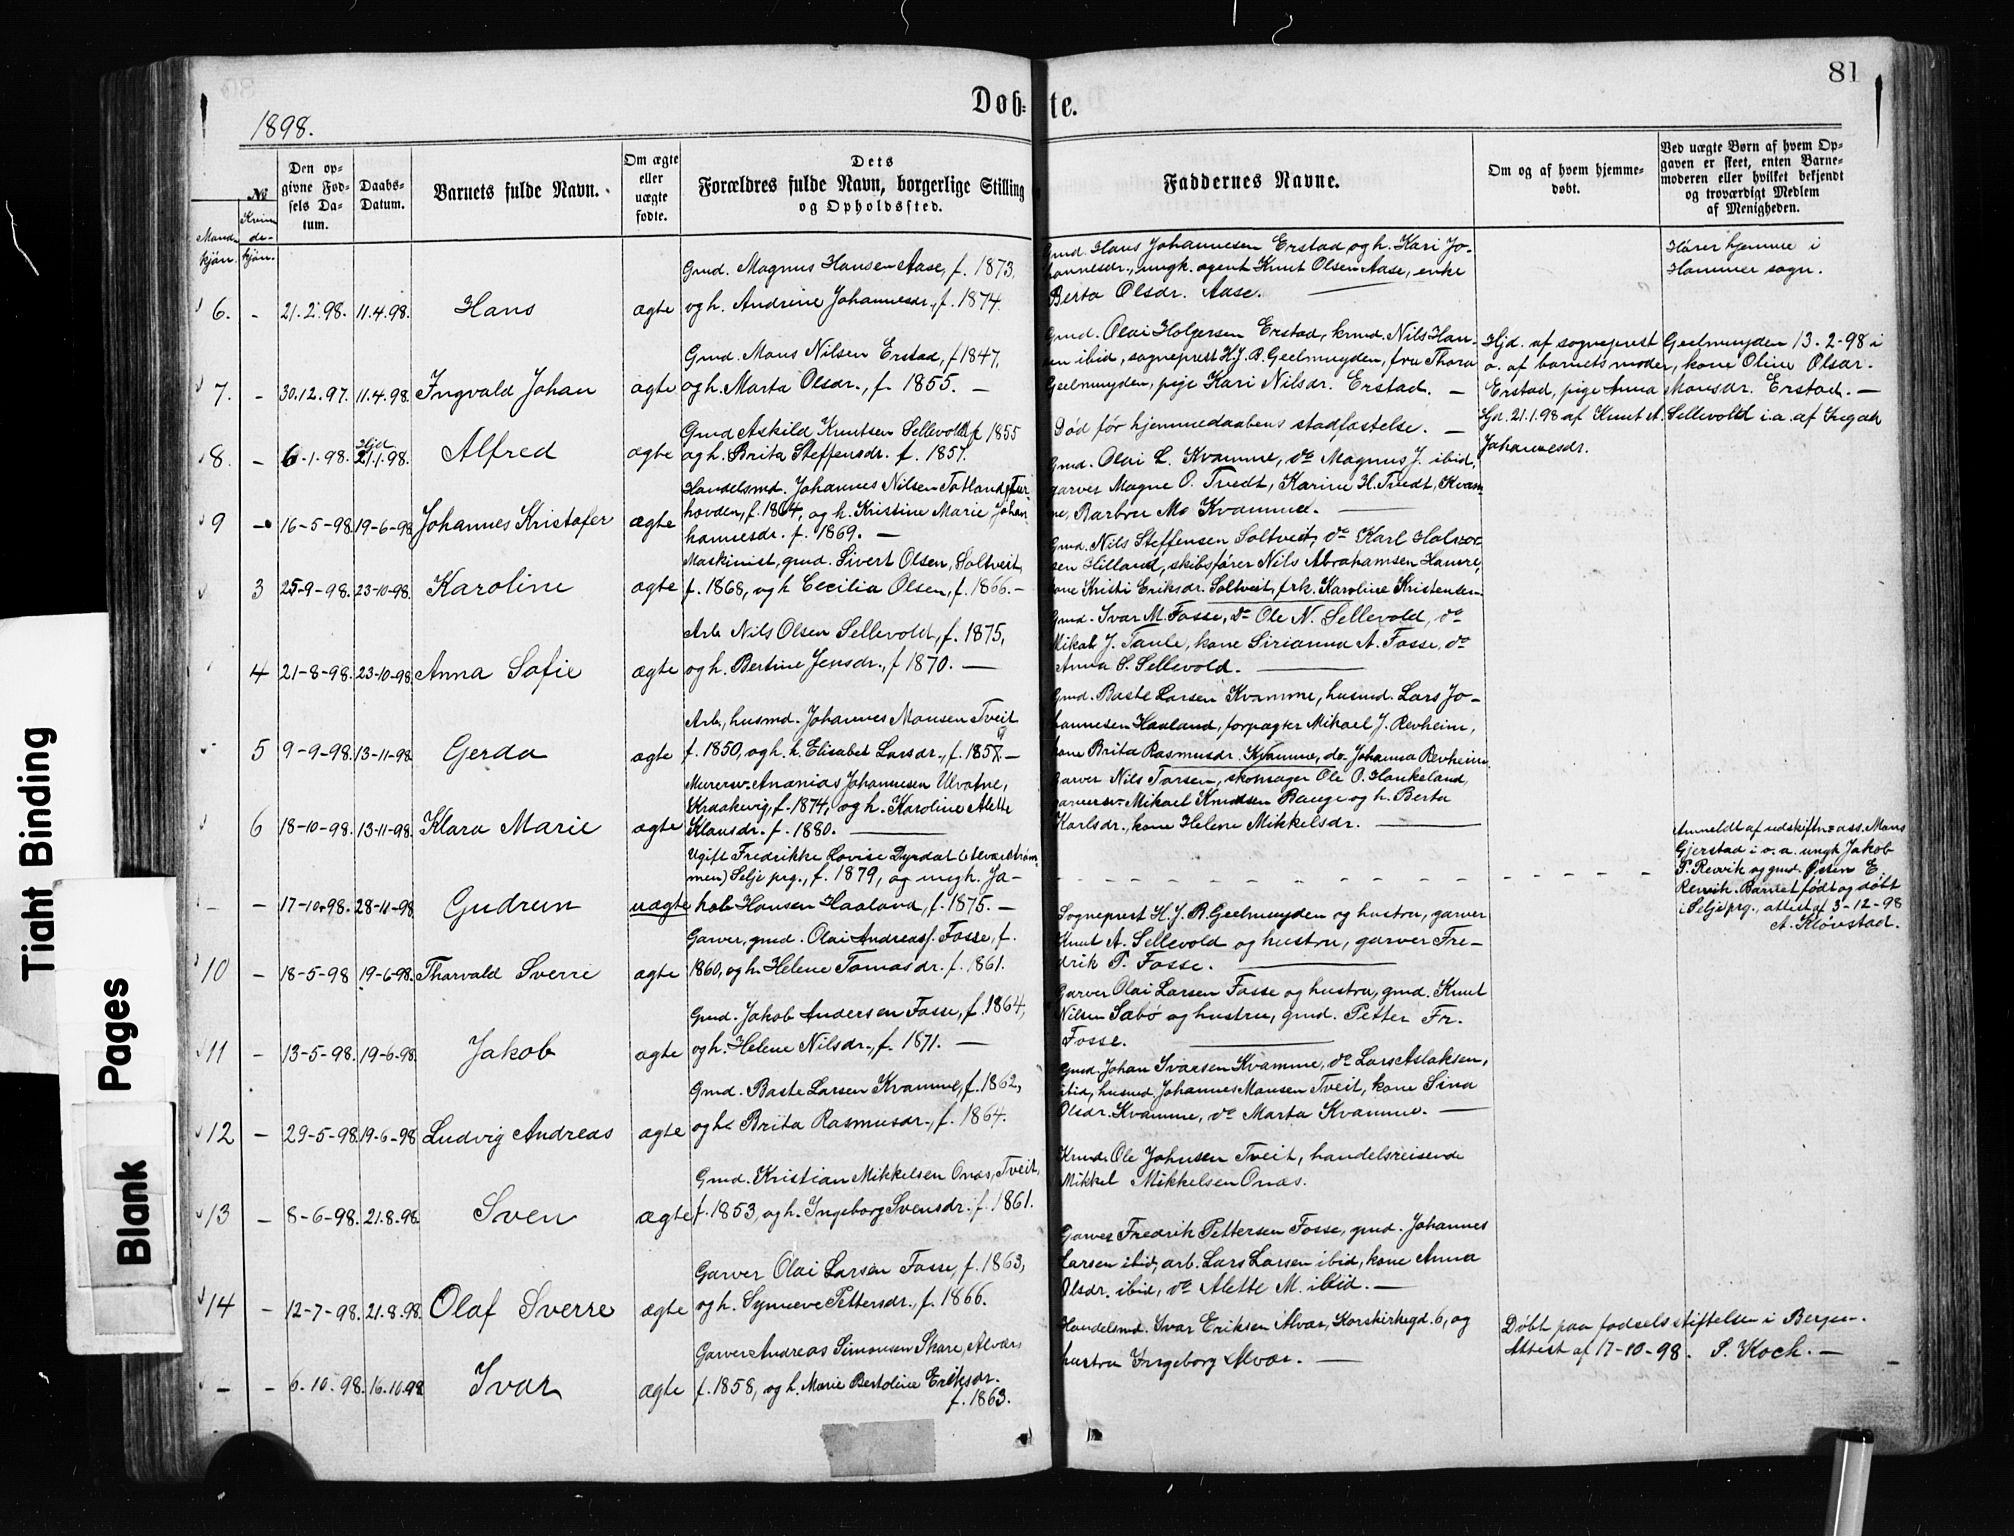 81
Døb-te.
1898.
№
Mandkjøn.
Kvindekjøn.
Den opgivne Fødsels Datum.
Daabs-Datum.
Barnets fulde Navn.
Om ægte eller uægte fødte.
Dets Forældres fulde Navn, borgerlige Stilling og Opholdssted.
Faddernes Navne.
Om og af hvem hjemmedøbt.
Ved uægte Børn af hvem Opgaven er skeet, enten Barnemoderen eller hvilket bekjendt og troværdigt Medlem af Menigheden.
6. - 21.2.98. 11.4.98. Hans ægte
Gmd. Magnus Hansen Aase, f. 1873,
og h. Andrine Johannesdr., f. 1874.
Gmd. Hans Johannesen Erstad og h. Kari Jo-
hannesdr., ungk. agent Knut Olsen Aase, enke
Berta Olsdr. Aase.
Hører hjemme i
Hammer sogn.
7. - 30.12.97. 11.4.98. Ingvald Johan ægte
Gmd. Mons Nilsen Erstad, f 1847,
og h. Marta Olsdr., f. 1855. -
Gmd. Olai Holgersen Erstad, krmd. Nils Han-
sen ibid, sogneprest H.J.B. Geelmuyden, fru Thora
Geelmuyden, pige Kari Nilsdr. Erstad. -
Hjd. af sogneprest Geelmuyden 13-2-98 i
o. af barnets moder, kone Oline Olsdr.
Erstad, pige Anna Monsdr. Erstad. -
8. - 6-1-98. Hjd 21.1.98. Alfred ægte
Gmd Askild Knutsen Sellevold f. 1855
og h. Brita Steffensdr. f. 1857.
Død før hjemmedaabens stadfæstelse. -
Hjd. 21.1.98 af Knut A. Sellevold i o. af Ingeb
Johannesdr.
9 - 16-5-98 19-6-98 Johannes Kristofer ægte
Handelsmd. Johannes Nilsen Totland, Tur-
hovden, f. 1864, og h. Kristine Marie Johan
hannesdr. f. 1869. -
Gmd. Olai L. Kvamme, do Magnus J. ibid,
garver Magne O. Tvedt, Karine H. Tvedt, Kvam-
me, Barbru Mo Kvamme.
3 25-9-98. 23-10-98. Karoline ægte
Maskinist, gmd. Sivert Olsen, Soltveit,
f. 1868, og h Cecilia Olsen, f. 1866. -
Gmd. Nils Steffensen Soltveit, do Karl Halvor
sen Hilland, skibsfører Nils Abrahamsen Hamre,
kone Kristi Eriksdr. Soltveit, frk. Karoline Kristensen
4 21-8-98. 23-10-98. Anna Sofie ægte
Arb Nils Olsen Sellevold, f. 1875,
og h. Bertine Jensdr., f 1870. -
Gmd. Ivar M. Fosse, do Ole N. Sellevold, do
Mikal J. Taule, kone Sirianna A. Fosse, do
Anna S. Sellevold.
5 9-9-98. 13-11-98 Gerda ægte
Arb, husmd. Johannes Monsen Tveit
f. 1850, og h. Elisabet Larsdr., f. 1857. -
Gmd. Baste Larsen Kvamme, husmd. Lars Jo-
hannesen Hauland, forpagter Mikael J. Revheim,
kone Brita Rasmusdr. Kvamme, do Johanna Revheim.
6 18-10-98. 13-11-98. Klara Marie ægte
Murersv. Ananias Johannesen Ulvatne,
Kraakevig, f. 1874, og h. Karoline Alette
Klausdr. f. 1880.
Garver Nils Tarsen, skomager Ole O. Haukeland,
garversv. Mikael Knudsen Bauge og h. Berta
Karlsdr., kone Helene Mikkelsdr.
- - 17-10-98. 28-11-98 Gudrun uægte
Ugift Fredrikke Lovise Dyrdal (Alverstrøm-
men) Selje prg., f. 1879, og ungk. Ja-
kob Hansen Haaland, f. 1875. -
Anmeldt af udskiftn. ass. Mons
Gjerstad i o. a. ungk Jakob
P. Revik og gmd. Ørsen E.
Revik. Barnet født og døbt
i Selje prg., attest af 3-12-98
A. Kløvstad.
10 - 18-5-98 19-6-98. Tharvald Sverre ægte
Garver, gmd. Olai Andreasf. Fosse, f.
1860, og h. Helene Tomasdr. f. 1861.
Sogneprest H.J.B. Geelmuyden og hustru, garver
Knut A. Sellevold og hustru, garver Fre-
drik P. Fosse.
11 - 13-5-98. 19-6-98. Jakob ægte
Gmd. Jakob Andersen Fosse, f. 1864,
og h. Helene Nilsdr., f. 1871. -
Garver Olai Larsen Fosse og hustru, gmd. Knut
Nilsen Sabø og hustru, gmd. Petter Fr.
Fosse.
12 - 29-5-98. 19-6-98 Ludvig Andreas ægte
Gmd. Baste Larsen Kvamme, f. 1862,
og h. Brita Rasmusdr., f. 1864.
Gmd. Johan Ivarsen Kvamme, do Lars Aslaksen,
ibid, husmd, Johannes Monsen Tveit, kone Sina
Olsdr. Kvamme, do Marta Kvamme. -
13 - 8-6-98. 21.8.98. Sven ægte
Gmd. Kristian Mikkelsen Onas, Tveit,
f. 1853, og h. Ingeborg Svensdr. f. 1861.
Krmd. Ole Johnsen Tveit, handelsreisende
Mikkel Mikkelsen Onas.
14 - 12-7-98. 21.8.98. Olaf Sverre ægte
Garver Olai Larsen Fosse, f. 1863,
og h. Synneve Pettersdr., f. 1866.
Garver Fredrik Pettersen Fosse, gmd. Johannes
Larsen ibid, arb. Lars Larsen ibid, kone Anna
Olsdr. ibid, do Alette M. ibid. -
- - 6.10.98. 16.10.98 Ivar ægte
Garver Andreas Simonsen Skare, Alvær,
f. 1858, og h. Marie Bertoline Eriksdr.
f. 1863.
Handelsmd. Ivar Eriksen Alvær, Korskirkegd. 6, og
hustru Ingeborg Alvær. -
Døbt paa fødselsstiftelsen i Bergen.
Attest af 17-10-98. S. Koch. -
Tight Binding
Blank Pages